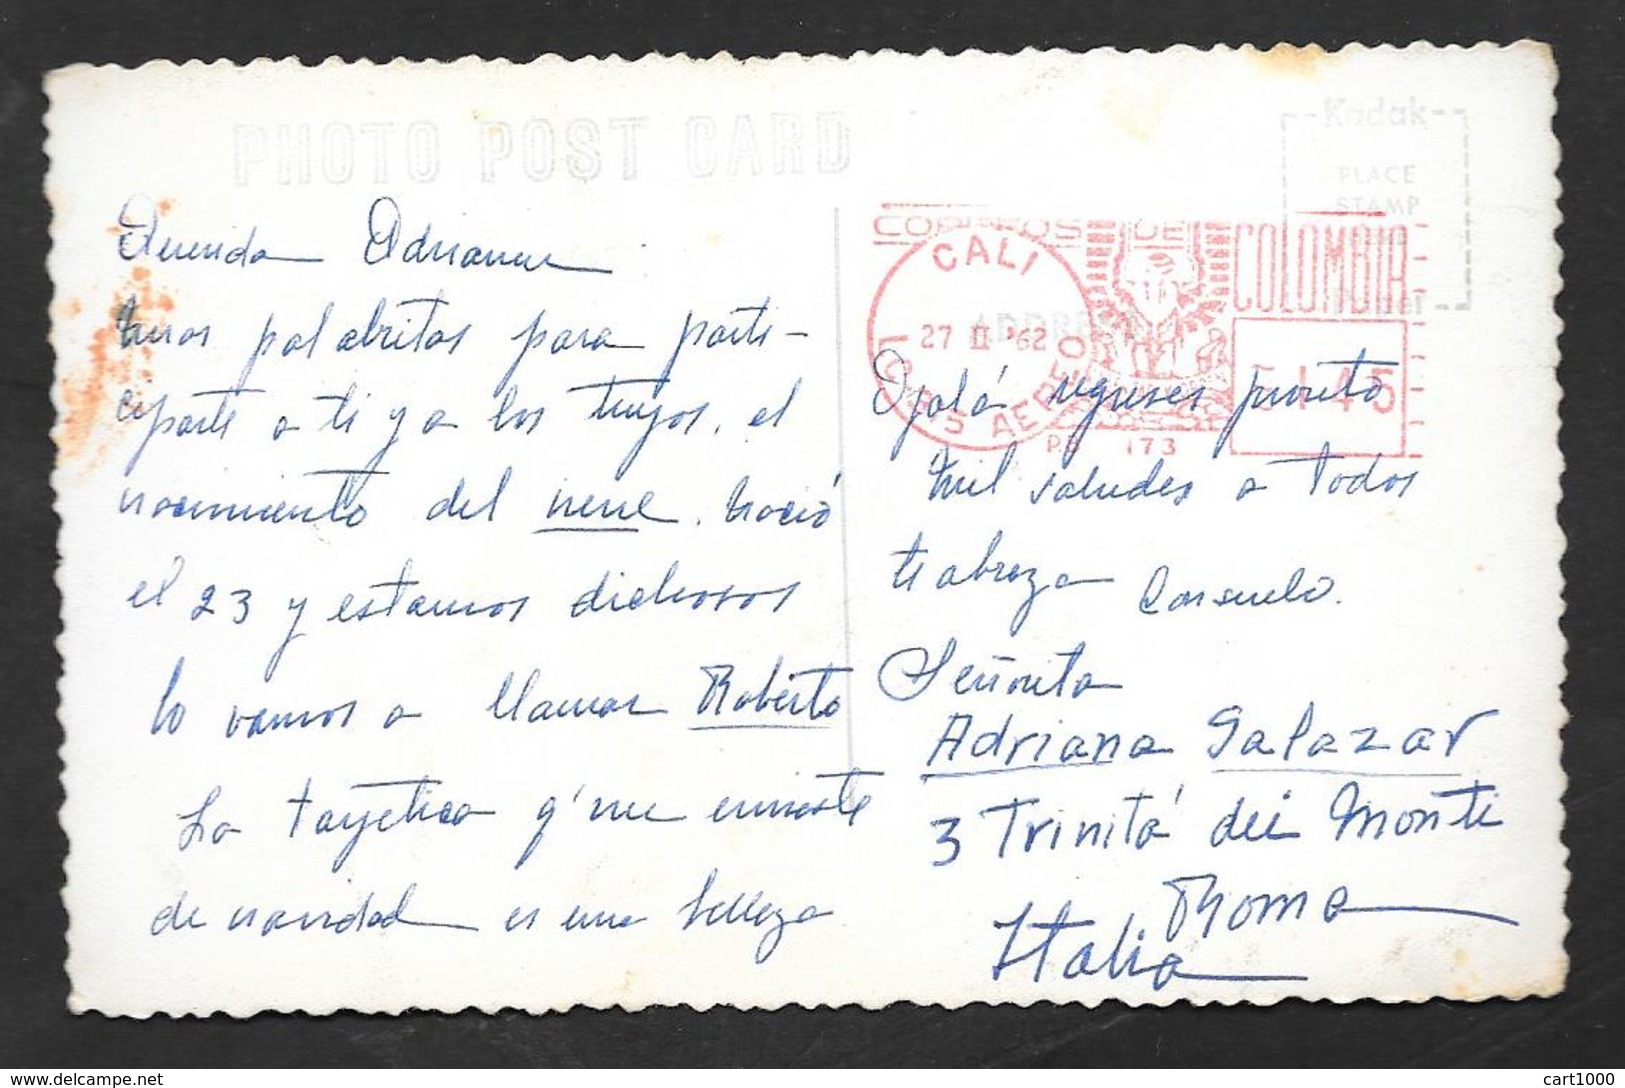 PHOTO POST CARD
Querida Adriana
unas palabritas para parti-
ciparte a ti y a los tuyos, el
nacimiento del nene, nació
el 23 y estamos dichosos
lo vamos a llamar Roberto
La tarjetica q' me enviaste
de navidad es una belleza
Kodak
PLACE
STAMP
Paper
CORREOS DE COLOMBIA
CALI
27 II '62
AEREO
P.B 173
5145
ADDRESS
Ojalá regreses pronto
Mil saludes a todos
te abraza Consuelo.
Señorita
Adriana Salazar
3 Trinitá dei Monti
Roma
Italia
delcampe.net
cart1000